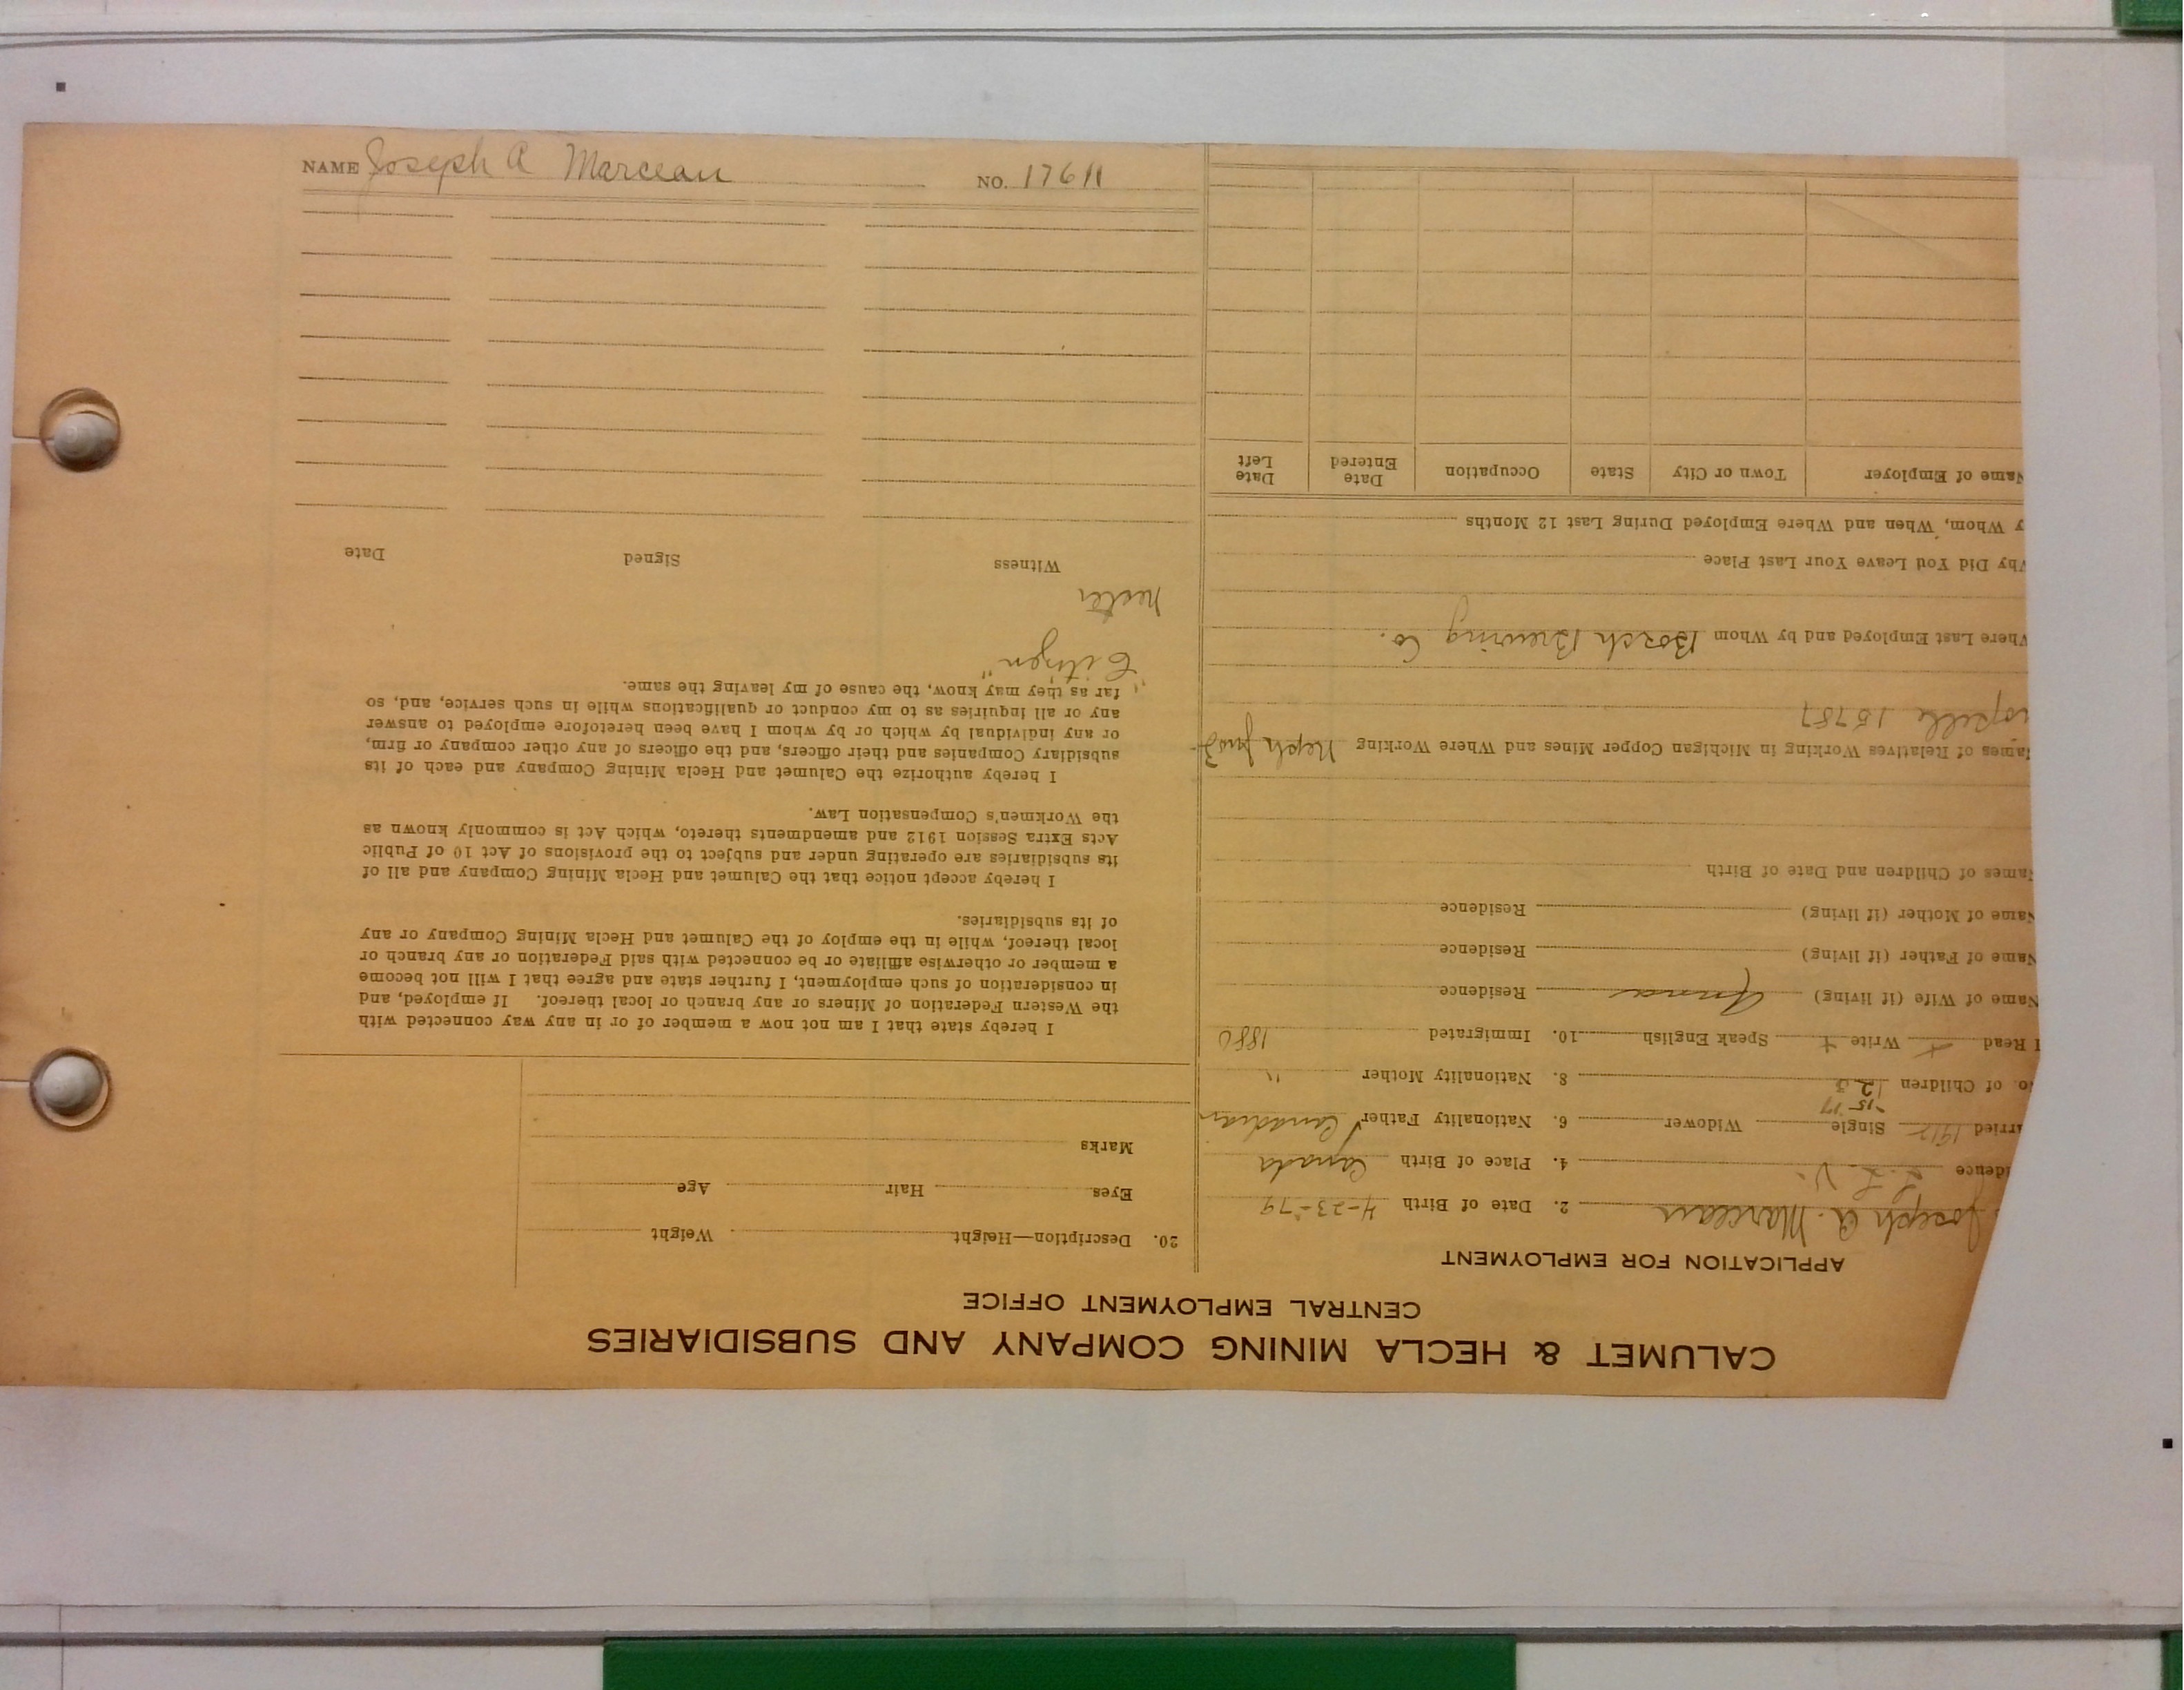 NAME Joseph A Marceau NO. 17611
CALUMET & HECLA MINING COMPANY AND SUBSIDIARIES
CENTRAL EMPLOYMENT OFFICE
APPLICATION FOR EMPLOYMENT
Joseph A. Marceau 2. Date of Birth 4-23-79
idence L. L. 4. Place of Birth Canada
rried 1912 Single Widower 6. Nationality Father Canadian
15 17
o. of Children 8. Nationality Mother "
I Read + Write + Speak English 10. Immigrated 1880
Name of Wife (if living) Anna Residence
Name of Father (if living) Residence
Name of Mother (if living) Residence
ames of Children and Date of Birth
ames of Relatives Working in Michigan Copper Mines and Where Working Neph
15787
Where Last Employed and by Whom Bosch Brewing Co.
Why Did You Leave Your Last Place
y Whom, When and Where Employed During Last 12 Months
Name of Employer Town or City State Occupation Date Entered Date Left
20. Description—Height Weight
Eyes Hair Age
Marks
I hereby state that I am not now a member of or in any way connected with
the Western Federation of Miners or any branch or local thereof. If employed, and
in consideration of such employment, I further state and agree that I will not become
a member or otherwise affiliate or be connected with said Federation or any branch or
local thereof, while in the employ of the Calumet and Hecla Mining Company or any
of its subsidiaries.
I hereby accept notice that the Calumet and Hecla Mining Company and all of
its subsidiaries are operating under and subject to the provisions of Act 10 of Public
Acts Extra Session 1912 and amendments thereto, which Act is commonly known as
the Workmen's Compensation Law.
I hereby authorize the Calumet and Hecla Mining Company and each of its
subsidiary Companies and their officers, and the officers of any other company or firm,
or any individual by which or by whom I have been heretofore employed to answer
any or all inquiries as to my conduct or qualifications while in such service, and, so
far as they may know, the cause of my leaving the same.
"Citizen"
Witness Signed Date